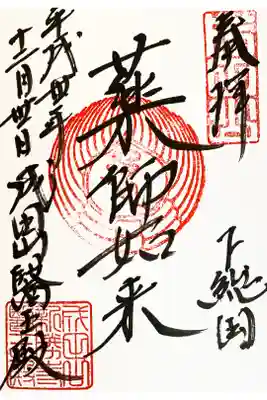 奉拝
下総国
薬師如来
平成卅年
十二月卅日 成田醫王殿